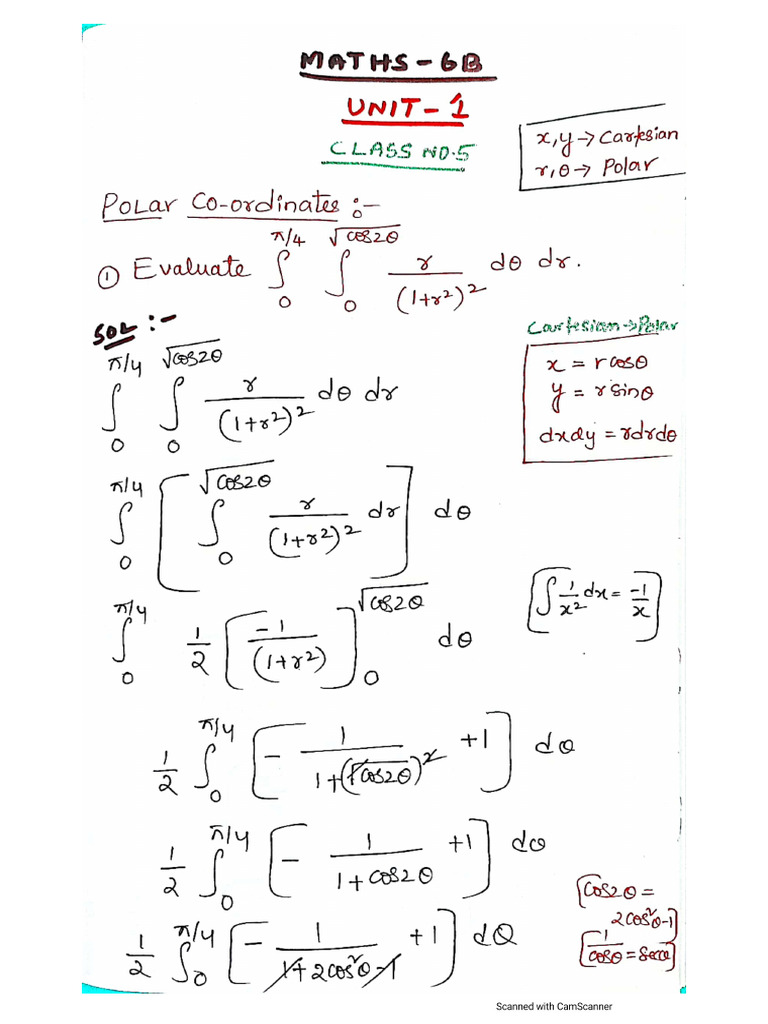 MATHS - 6B
UNIT - 1
CLASS NO.5
x, y → Cartesian
r, θ → Polar
Polar Co-ordinates :-
① Evaluate ∫₀^{π/4} ∫₀^{√cos2θ} r/(1+r²)² dθ dr.
SOL :-
Cartesian → Polar
x = r cosθ
y = r sinθ
dxdy = rdrdθ
∫₀^{π/4} ∫₀^{√cos2θ} r/(1+r²)² dθ dr
∫₀^{π/4} [ ∫₀^{√cos2θ} r/(1+r²)² dr ] dθ
[∫ 1/x² dx = -1/x]
∫₀^{π/4} 1/2 [ -1/(1+r²) ]₀^{√cos2θ} dθ
1/2 ∫₀^{π/4} [ - 1/(1+(√cos2θ)²) +1 ] dθ
1/2 ∫₀^{π/4} [ - 1/(1+cos2θ) +1 ] dθ
[cos2θ =
2cos²θ-1]
[1/cosθ = secθ]
1/2 ∫₀^{π/4} [ - 1/(1+2cos²θ-1) +1 ] dθ
Scanned with CamScanner